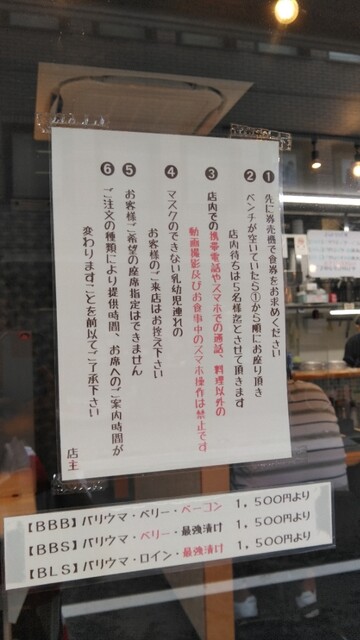 ❶ 先に券売機で食券をお求めください
❷ ベンチが空いていたら①から順にお座り頂き
店内待ちは5名様迄とさせて頂きます
❸ 店内での携帯電話やスマホでの通話、料理以外の
動画撮影及びお食事中のスマホ操作は禁止です
❹ マスクのできない乳幼児連れの
お客様のご来店はお控え下さい
❺ お客様ご希望の座席指定はできません
❻ ご注文の種類により提供時間、お席へのご案内時間が
変わりますことを前以てご了承下さい
店主
【BBB】バリウマ・ベリー・ベーコン 1,500円より
【BBS】バリウマ・ベリー・最強漬け 1,500円より
【BLS】バリウマ・ロイン・最強漬け 1,500円より